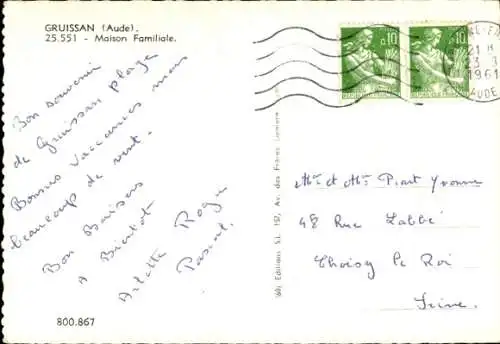 GRUISSAN (Aude).
25.551 - Maison Familiale.
Bon souvenir
de Gruissan plage
Bonnes vacances mais
beaucoup de vent.
Bon Baisers
A Bientot
Arlette Roger
Pascal.
800.867
Editions S.L. 157, Av. des Frères Lumière
0,10 0,10
21 H
23 - 8
1961
AUDE
Mr et Mme Piart Yvonne
48 Rue Labbé
Choisy le Roi
Seine.